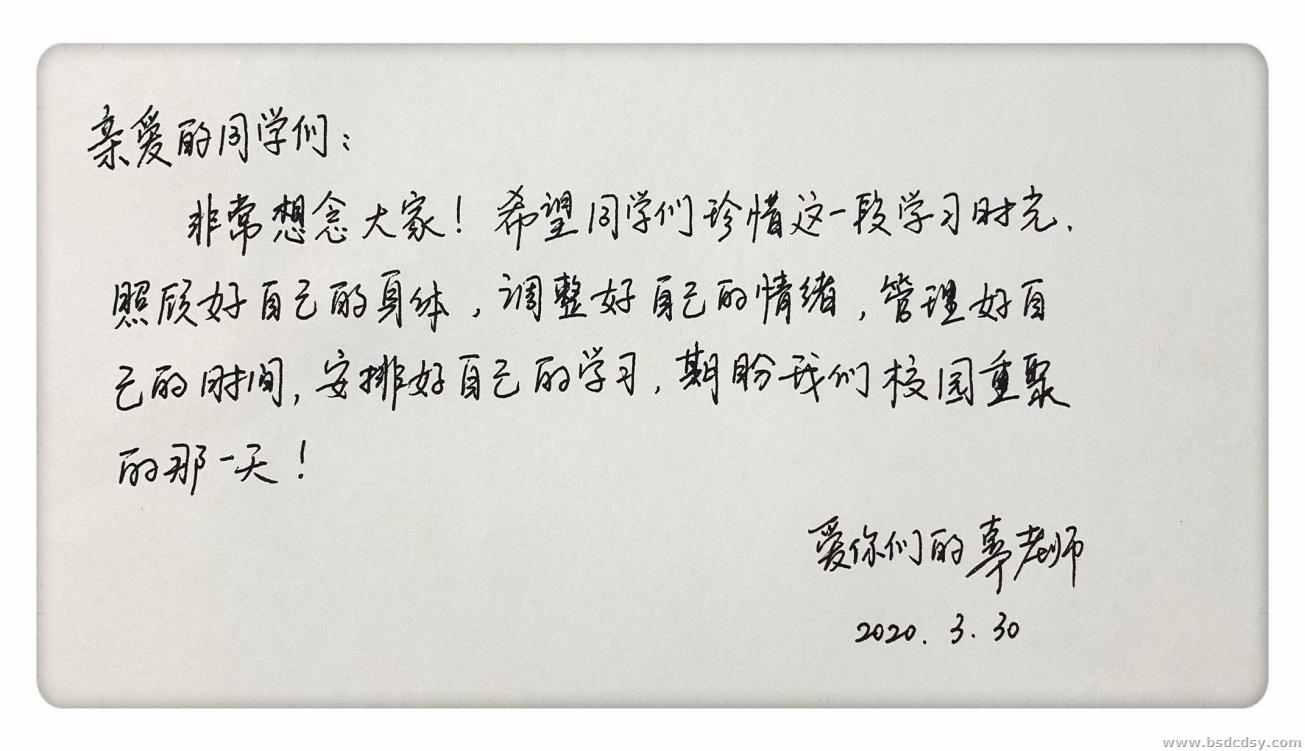 亲爱的同学们：
非常想念大家！希望同学们珍惜这一段学习时光．
照顾好自己的身体，调整好自己的情绪，管理好自
己的时间，安排好自己的学习，期盼我们校园重聚
的那一天！
爱你们的辜老师
2020．3．30
www.bsdcdsy.com